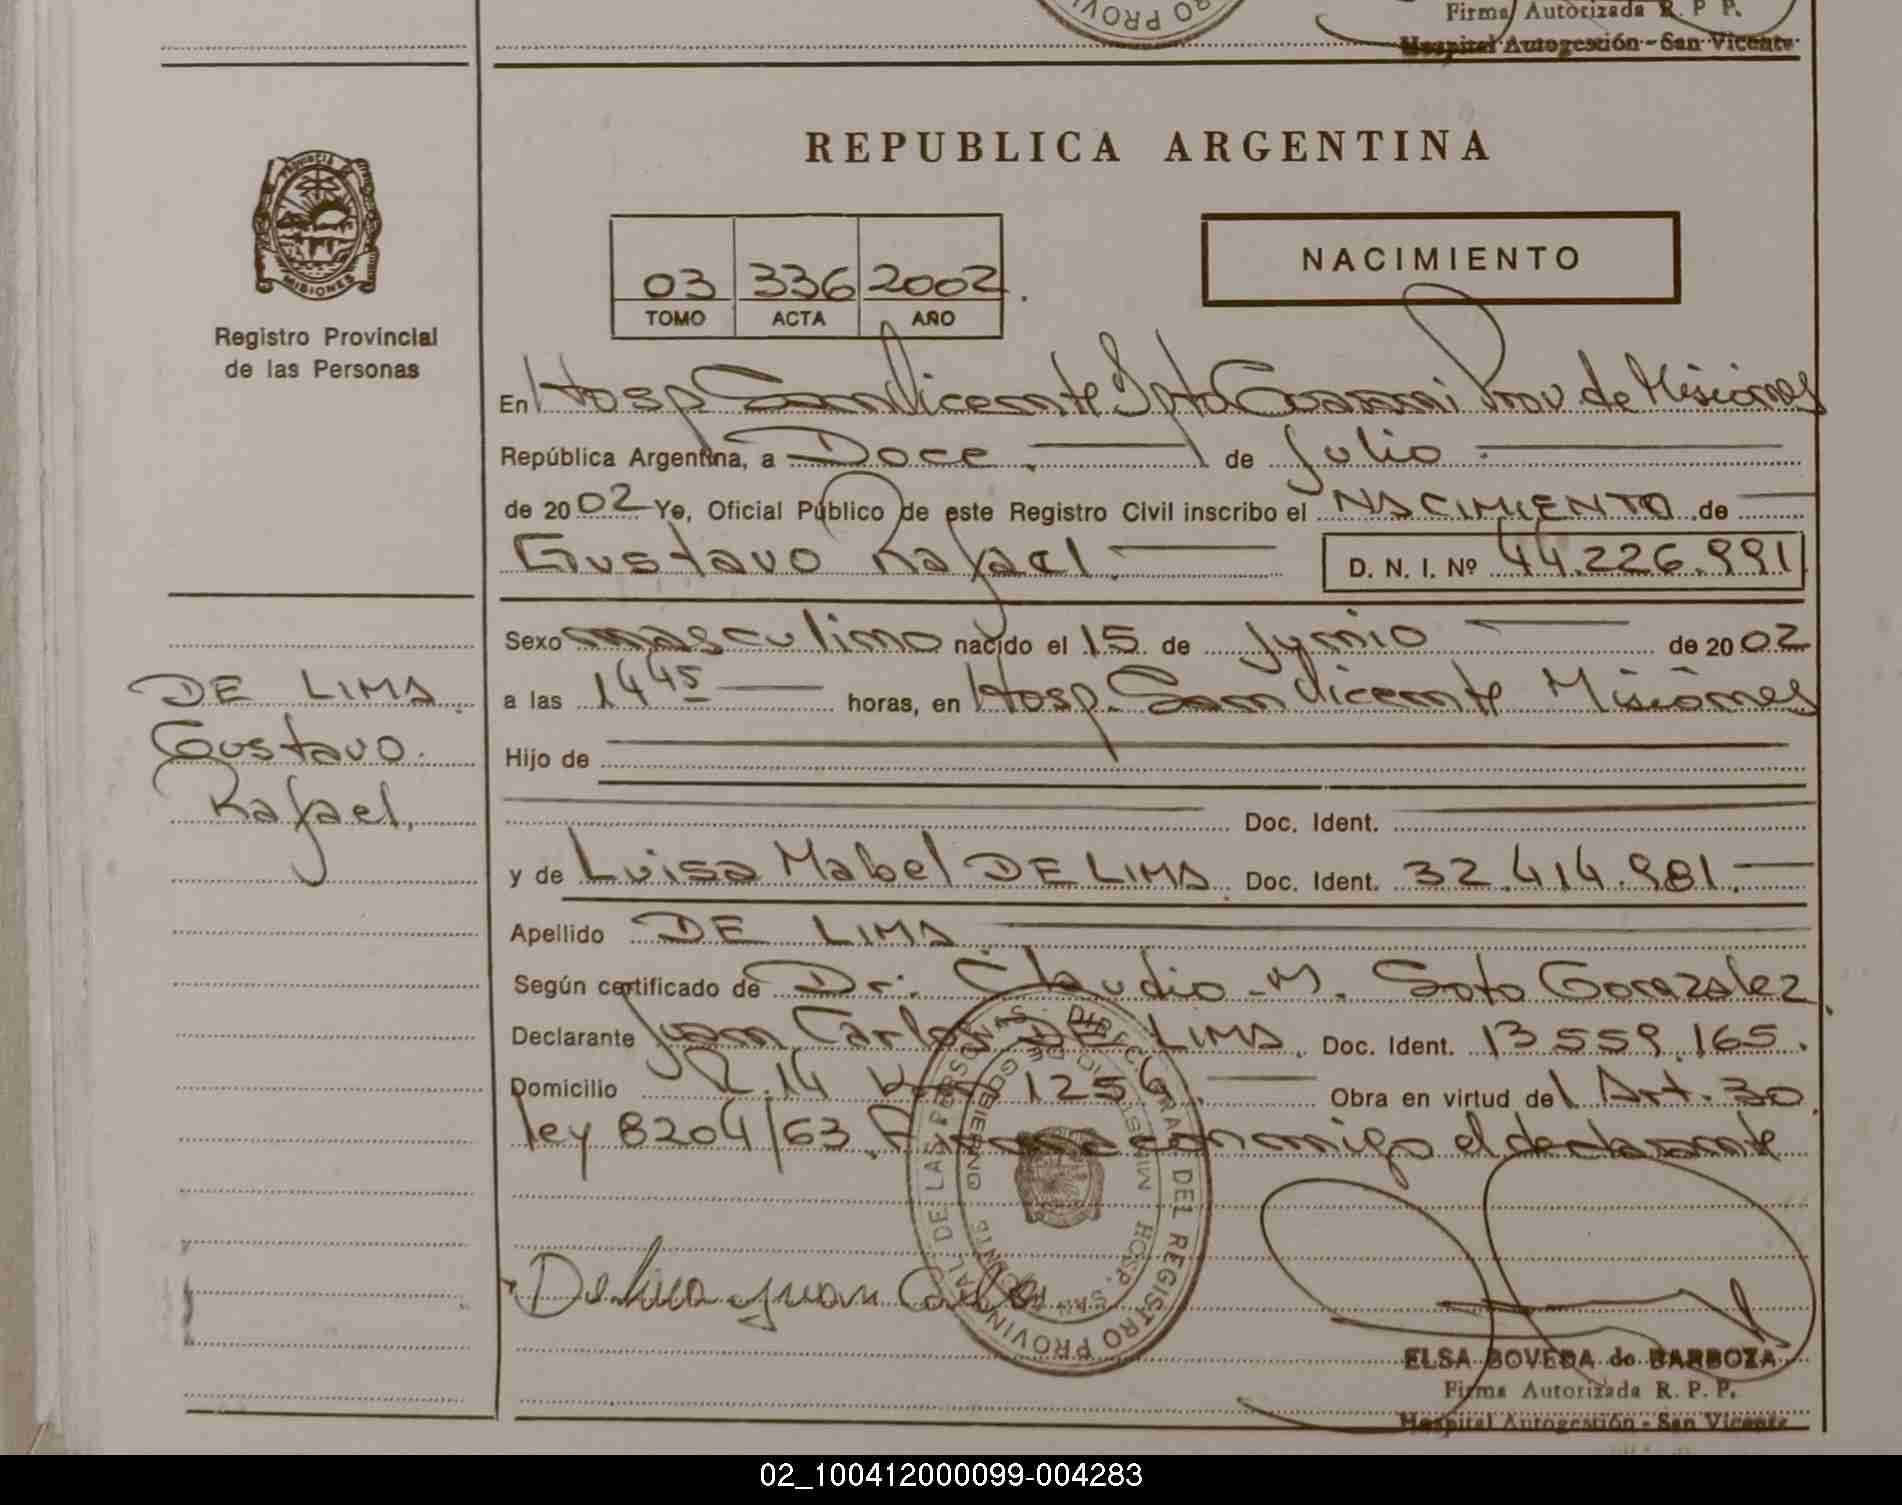 Firma Autorizada R. P. P.
Hospital Autogestión - San Vicente
REPUBLICA ARGENTINA
PROVINCIA
MISIONES
Registro Provincial
de las Personas
03 336 2002.
TOMO ACTA AÑO
NACIMIENTO
En Hosp San Vicente Dpto Guarani Prov de Misiones
República Argentina, a Doce. de Julio
de 2002 Yo, Oficial Público de este Registro Civil inscribo el NACIMIENTO de
Gustavo Rafael D. N. I. Nº 44.226.991
Sexo masculino nacido el 15 de Junio de 2002
a las 14 45 horas, en Hosp. San Vicente Misiones
Hijo de
Doc. Ident.
y de Luisa Mabel DE LIMA Doc. Ident. 32.414.981.
Apellido DE LIMA
Según certificado de Dr. Claudio M. Soto Gonzalez
Declarante Juan Carlos DE LIMA. Doc. Ident. 13.559.165.
Domicilio R. 14 Km 1256. Obra en virtud del Art. 30
ley 8204/63. Firma conmigo el declarante
DE LIMA
Gustavo.
Rafael.
De Lima Juan Carlos
DIREC. GRAL. DEL REGISTRO PROVINCIAL DE LAS PERSONAS
HOSP. SAN VICENTE
ELSA BOVEDA de BARBOZA
Firma Autorizada R. P. P.
Hospital Autogestión - San Vicente
02_100412000099-004283